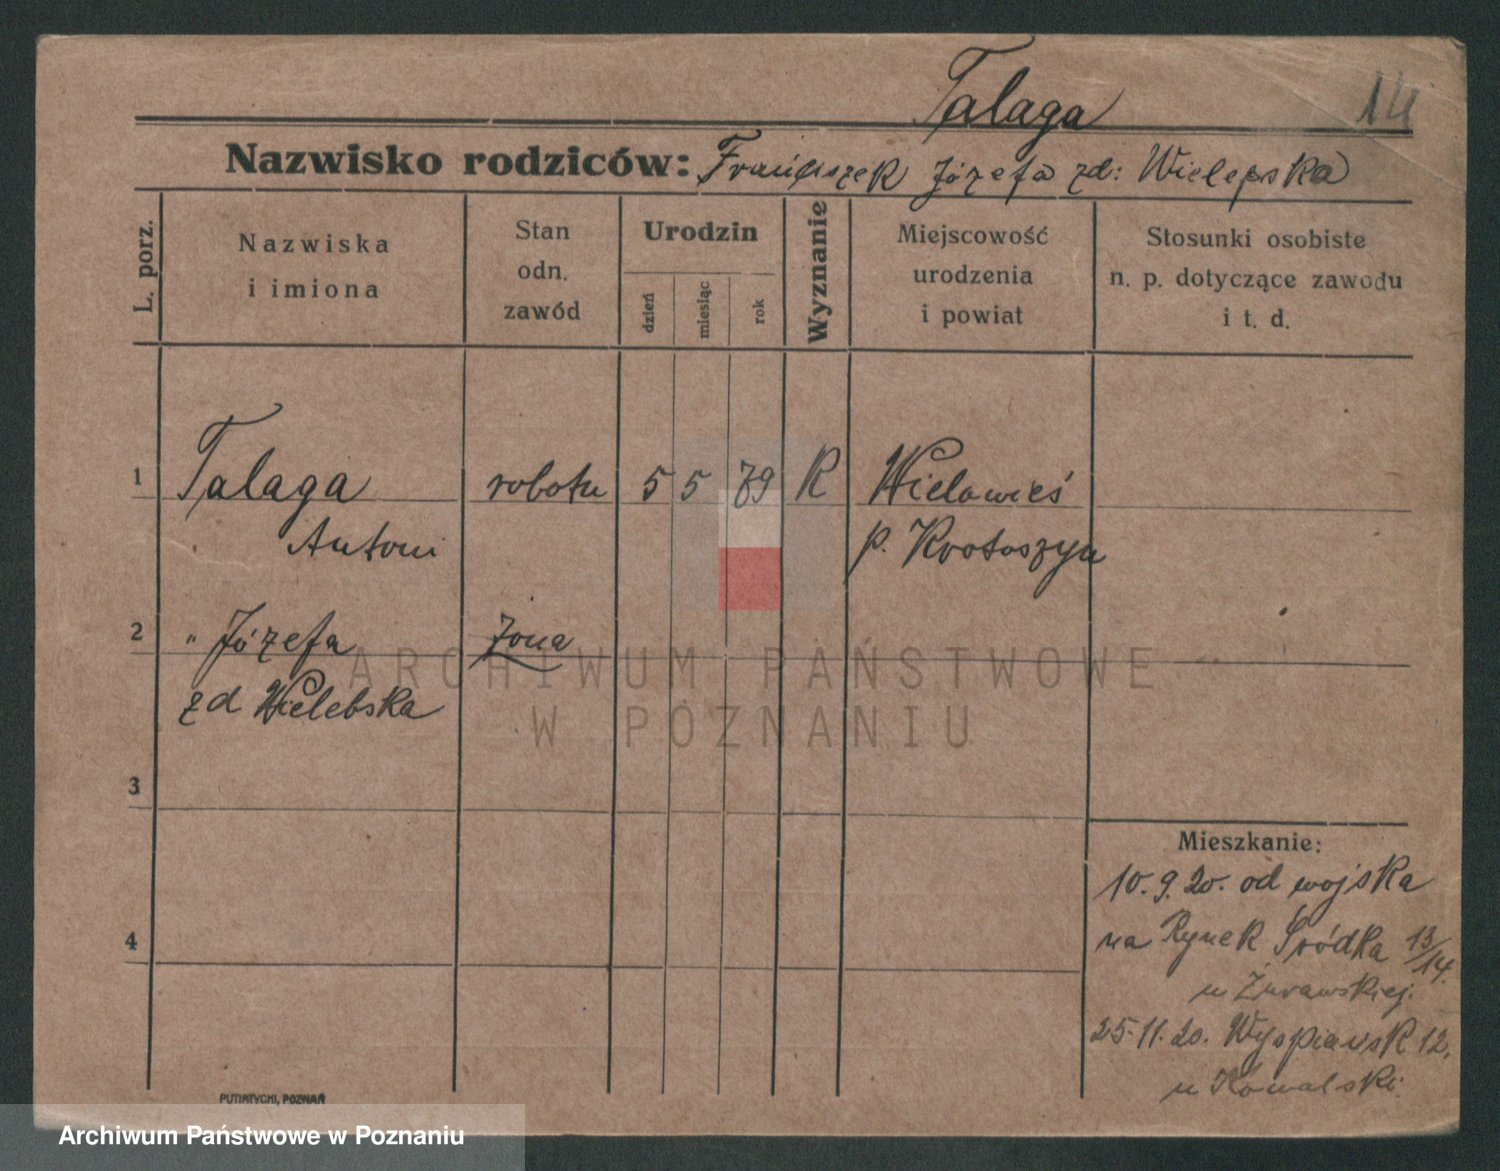 Talaga
14
Nazwisko rodziców: Franciszek Józefa zd: Wielepska
L. porz.
Nazwiska
i imiona
Stan
odn.
zawód
Urodzin
dzień
miesiąc
rok
Wyznanie
Miejscowość
urodzenia
i powiat
Stosunki osobiste
n. p. dotyczące zawodu
i t. d.
1 Talaga robotn 5 5 79 R Wielowieś
Antoni p. Krotoszyn
2 " Józefa żona
zd Wielebska
ARCHIWUM PAŃSTWOWE
W POZNANIU
3
4
Mieszkanie:
10. 9. 20. od wojska
na Rynek Śródka 13/14.
u Żurawskiej.
25. 11. 20. Wyspiańsk 12.
u Kowalski.
PUTIATYCKI, POZNAŃ
Archiwum Państwowe w Poznaniu